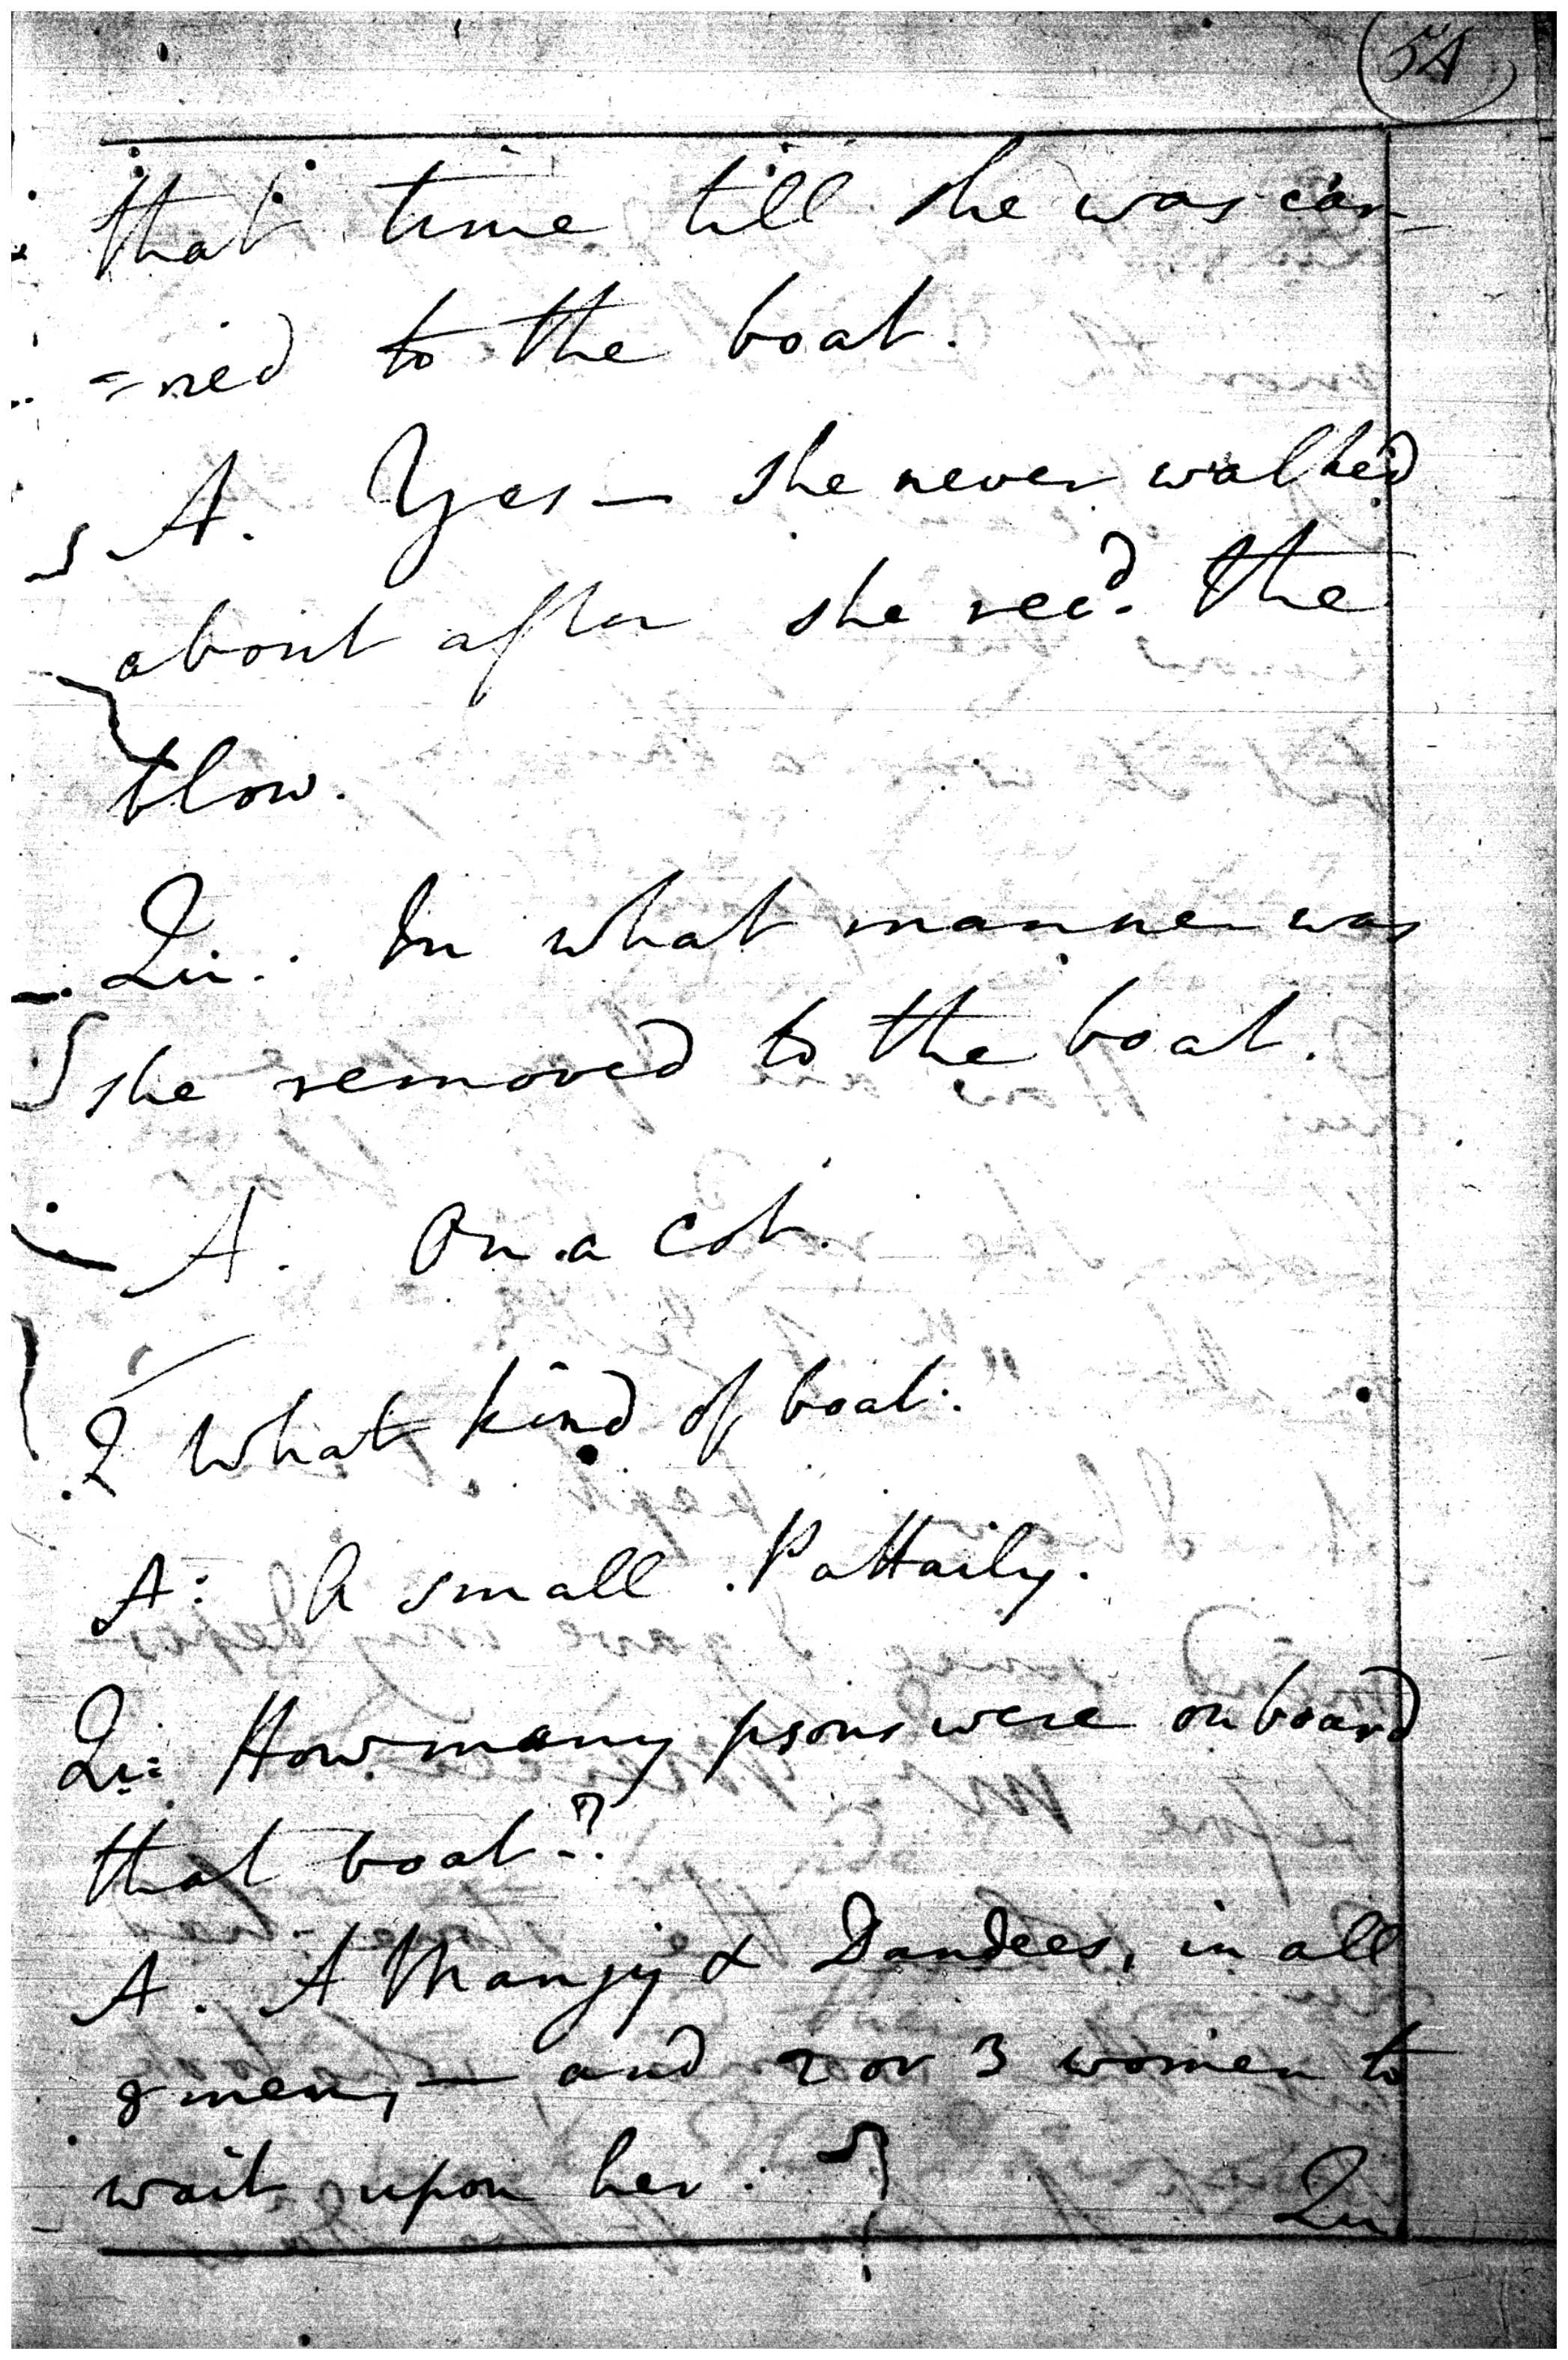 54
that time till she was car-
=ried to the boat.
A. Yes — she never walked
about after she recd. the
blow.
Qu: In what manner was
she removed to the boat.
A. On a cot.
Q What kind of boat.
A: A small Pattaily.
Qu: How many psons were on board
that boat?
A. A Mangy & Dandees, in all
8 men, — and 2 or 3 women to
wait upon her.
Qu